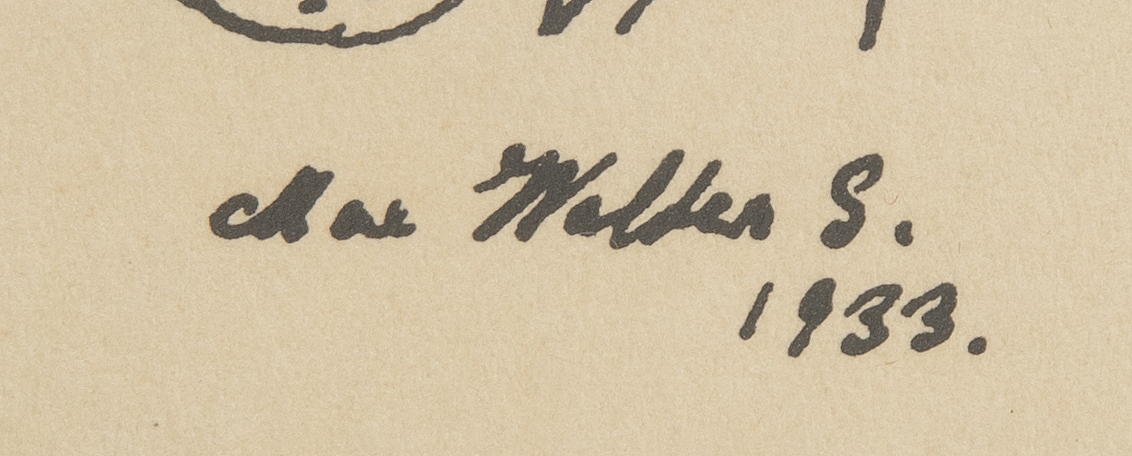 Max Walter S.
1933.